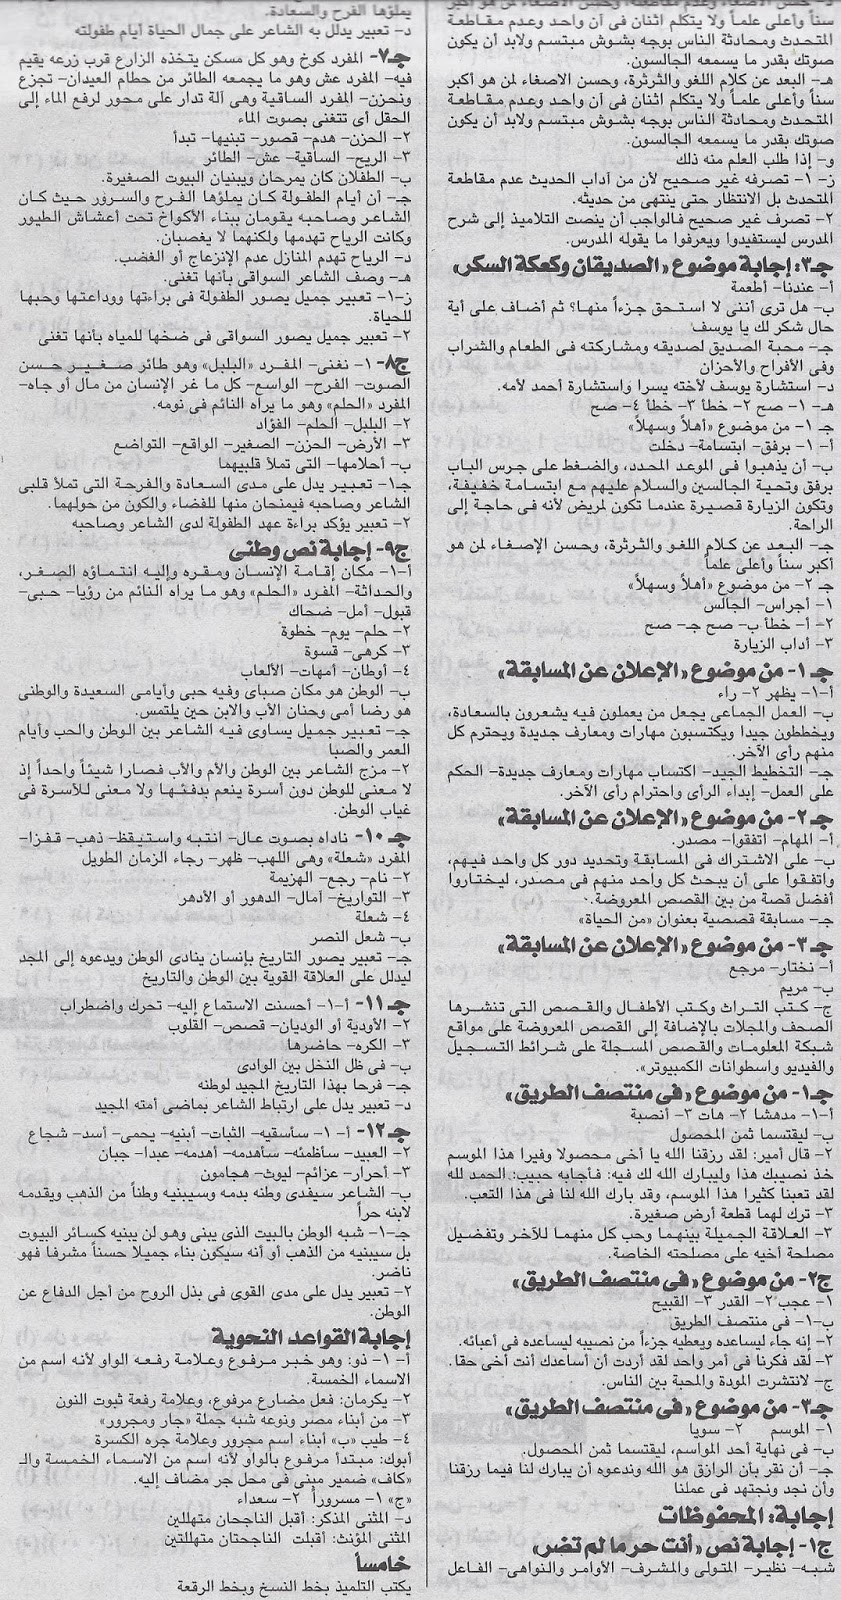 د- حسن الإصغاء وعدم مقاطعته، وحسن الإصغاء لمن هو أكبر
سناً وأعلى علماً ولا يتكلم اثنان فى آن واحد وعدم مقاطعة
المتحدث ومحادثة الناس بوجه بشوش مبتسم ولابد أن يكون
صوتك بقدر ما يسمعه الجالسون.
هـ- البعد عن كلام اللغو والثرثرة، وحسن الاصغاء لمن هو أكبر
سناً وأعلى علماً ولا يتكلم اثنان فى آن واحد وعدم مقاطعة
المتحدث ومحادثة الناس بوجه بشوش مبتسم ولابد أن يكون
صوتك بقدر ما يسمعه الجالسون.
و- إذا طلب العلم منه ذلك
ز- ١- تصرفه غير صحيح لأن من آداب الحديث عدم مقاطعة
المتحدث بل الانتظار حتى ينتهى من حديثه.
٢- تصرف غير صحيح فالواجب أن ينصت التلاميذ إلى شرح
المدرس ليستفيدوا ويعرفوا ما يقوله المدرس.
جـ٣: إجابة موضوع «الصديقان وكعكة السكر»
أ- عندنا- أطعمة
ب- هل ترى أننى لا استحق جزءاً منها؟ ثم أضاف على أية
حال شكر لك يا يوسف
جـ- محبة الصديق لصديقه ومشاركته فى الطعام والشراب
وفى الأفراح والأحزان
د- استشارة يوسف لأخته يسرا واستشارة أحمد لأمه.
هـ- ١- صح ٢- خطأ ٣- خطأ ٤- صح
جـ ١- من موضوع «أهلاً وسهلاً»
أ- ١- برفق- ابتسامة- دخلت
ب- أن يذهبوا فى الموعد المحدد، والضغط على جرس الباب
برفق وتحية الجالسين والسلام عليهم مع ابتسامة خفيفة،
وتكون الزيارة قصيرة عندما تكون لمريض لأنه فى حاجة إلى
الراحة.
جـ- البعد عن كلام اللغو والثرثرة، وحسن الإصغاء لمن هو
أكبر سناً وأعلى علماً
جـ ٢- من موضوع «أهلاً وسهلاً»
١- أجراس- الجالس
٢- أ- خطأ ب- صح جـ- صح
٣- أداب الزيارة
جـ ١- من موضوع «الإعلان عن المسابقة»
أ-١- يظهر ٢- راء
ب- العمل الجماعى يجعل من يعملون فيه يشعرون بالسعادة،
ويخططون جيدا ويكتسبون مهارات ومعارف جديدة ويحترم كل
منهم رأى الآخر.
جـ- التخطيط الجيد- اكتساب مهارات ومعارف جديدة- الحكم
على العمل- إبداء الرأى واحترام رأى الآخر.
جـ٢- من موضوع «الإعلان عن المسابقة»
أ- المهام- اتفقوا- مصدر.
ب- على الاشتراك فى المسابقة وتحديد دور كل واحد فيهم،
واتفقوا على أن يبحث كل واحد منهم فى مصدر، ليختاروا
أفضل قصة من بين القصص المعروضة.
جـ- مسابقة قصصية بعنوان «من الحياة»
جـ ٣- من موضوع «الإعلان عن المسابقة»
أ- نختار- مرجع
ب- مريم
ج- كتب التراث وكتب الأطفال والقصص التى تنشرها
الصحف والمجلات بالإضافة إلى القصص المعروضة على مواقع
شبكة المعلومات والقصص المسجلة على شرائط التسجيل
والفيديو واسطوانات الكمبيوتر».
جـ١- من موضوع «فى منتصف الطريق»
أ-١- مدهشا ٢- هات ٣- أنصبة
ب- ليقتسما ثمن المحصول
٢- قال أمير: لقد رزقنا الله يا أخى محصولا وفيرا هذا الموسم
خذ نصيبك هذا وليبارك الله لك فيه: فأجابه حبيب: الحمد لله
لقد تعبنا كثيرا هذا الموسم، وقد بارك الله لنا فى هذا التعب.
٣- ترك لهما قطعة أرض صغيرة.
٣- العلاقة الجميلة بينهما وحب كل منهما للآخر وتفضيل
مصلحة أخيه على مصلحته الخاصة.
ج٢- من موضوع «فى منتصف الطريق»
١- عجب ٢- القدر ٣- القبيح
ب-١- فى منتصف الطريق
٢- إنه جاء ليساعده ويعطيه جزءاً من نصيبه ليساعده فى أعبائه.
٣- لقد فكرنا فى أمر واحد لقد أردت أن أساعدك أنت أخى حقا.
ج- لانتشرت المودة والمحبة بين الناس.
جـ٣- من موضوع «فى منتصف الطريق»
١- الموسم ٢- سويا
ب- فى نهاية أحد المواسم، ليقتسما ثمن المحصول.
جـ- أن نقر بأن الرازق هو الله وندعوه أن يبارك لنا فيما رزقنا
وأن نجد ونجتهد فى عملنا
إجابة: المحفوظات
ج١- إجابة نص «أنت حر ما لم تضر»
شبه- نظير- المتولى والمشرف- الأوامر والنواهى- الفاعل
يملؤها الفرح والسعادة.
د- تعبير يدلل به الشاعر على جمال الحياة أيام طفولته
جـ٧- المفرد كوخ وهو كل مسكن يتخذه الزارع قرب زرعه يقيم
فيه- المفرد عش وهو ما يجمعه الطائر من حطام العيدان- تجزع
ونحزن- المفرد الساقية وهى آلة تدار على محور لرفع الماء إلى
الحقل أى تتغنى بصوت الماء
٢- الحزن- هدم- قصور- تبنيها- تبدأ
٣- الريح- الساقية- عش- الطائر
ب- الطفلان كان يمرحان ويبنيان البيوت الصغيرة.
جـ- أن أيام الطفولة كان يملؤها الفرح والسرور حيث كان
الشاعر وصاحبه يقومان ببناء الأكواخ تحت أعشاش الطيور
وكانت الرياح تهدمها ولكنهما لا يغصبان.
د- الرياح تهدم المنازل عدم الإنزعاج أو الغضب.
هـ- وصف الشاعر السواقى بأنها تغنى.
ز-١- تعبير جميل يصور الطفولة فى براءتها ووداعتها وحبها
للحياة.
٢- تعبير جميل يصور السواقى فى ضخها للمياه بأنها تغنى
ج٨- ١- نغنى- المفرد «البلبل» وهو طائر صغير حسن
الصوت- الفرح- الواسع- كل ما غر الإنسان من مال أو جاه-
المفرد «الحلم» وهو ما يراه النائم فى نومه.
٢- البلبل- الحلم- الفؤاد
٣- الأرض- الحزن- الصغير- الواقع- التواضع
ب- أحلامها- التى تملأ قلبيهما
جـ١- تعبير يدل على مدى السعادة والفرحة التى تملأ قلبى
الشاعر وصاحبه فيمنحان منها للفضاء والكون من حولهما.
٢- تعبير يؤكد براءة عهد الطفولة لدى الشاعر وصاحبه
ج٩- إجابة نص وطنى
أ-١- مكان إقامة الإنسان ومقره وإليه انتماؤه الصغر،
والحداثة- المفرد «الحلم» وهو ما يراه النائم من رؤيا- حبى-
قبول- أمل- ضحاك
٢- حلم- يوم- خطوة
٣- كرهى- قسوة
٤- أوطان- أمهات- الألعاب
ب- الوطن هو مكان صباى وفيه حبى وأيامى السعيدة والوطنى
هو رضا أمى وحنان الأب والابن حين يلتمس.
جـ- تعبير جميل يساوى فيه الشاعر بين الوطن والحب وأيام
العمر والصبا
٢- مزج الشاعر بين الوطن والأم والأب فصارا شيئاً واحداً إذ
لا معنى للوطن دون أسرة ينعم بدفئها ولا معنى للأسرة فى
غياب الوطن.
جـ ١٠- ناداه بصوت عال- انتبه واستيقظ- ذهب- قفزا-
المفرد «شعلة» وهى اللهب- ظهر- رجاء الزمان الطويل
٢- نام- رجع- الهزيمة
٣- التواريخ- آمال- الدهور أو الأدهر
٤- شعلة
ب- شعل النصر
جـ- تعبير يصور التاريخ بإنسان ينادى الوطن ويدعوه إلى المجد
ليدلل على العلاقة القوية بين الوطن والتاريخ
جـ ١١- أ-١- أحسنت الاستماع إليه- تحرك واضطراب
٢- الأودية أو الوديان- قصص- القلوب
٣- الكره- حاضرها
ب- فى ظل النخل بين الوادى
جـ- فرحا بهذا التاريخ المجيد لوطنه
د- تعبير يدل على ارتباط الشاعر بماضى أمته المجيد
جـ ١٢- أ- ١- سأسقيه- الثبات- أبنيه- يحمى- أسد- شجاع
٢- العبيد- سأظمئه- سأهدمه- أهدمه- عبدا- جبان
٣- أحرار- عزائم- ليوث- هجامون
ب- الشاعر سيفدى وطنه بدمه وسيبنيه وطناً من الذهب ويقدمه
لابنه حراً
جـ-١- شبه الوطن بالبيت الذى يبنى وهو لن يبنيه كسائر البيوت
بل سيبنيه من الذهب أو أنه سيكون بناء جميلا حسناً مشرفا فهو
ناضر.
٢- تعبير يدل على مدى القوى فى بذل الروح من أجل الدفاع عن
الوطن.
إجابة القواعد النحوية
أ- ١- ذو: وهو خبر مرفوع وعلامة رفعه الواو لأنه اسم من
الاسماء الخمسة.
٢- يكرمان: فعل مضارع مرفوع، وعلامة رفعة ثبوت النون
٣- من أبناء مصر ونوعه شبه جملة «جار ومجرور»
٤- طيب «ب» أبناء اسم مجرور وعلامة جره الكسرة
أبوك: مبتدأ مرفوع بالواو لأنه اسم من الاسماء الخمسة والـ
«كاف» ضمير مبنى فى محل جر مضاف إليه.
«ج» ١- مسروراً ٢- سعداء
د- المثنى المذكر: أقبل الناجحان متهللين
المثنى المؤنث: أقبلت الناجحتان متهللتين
خامساً
يكتب التلميذ بخط النسخ وبخط الرقعة